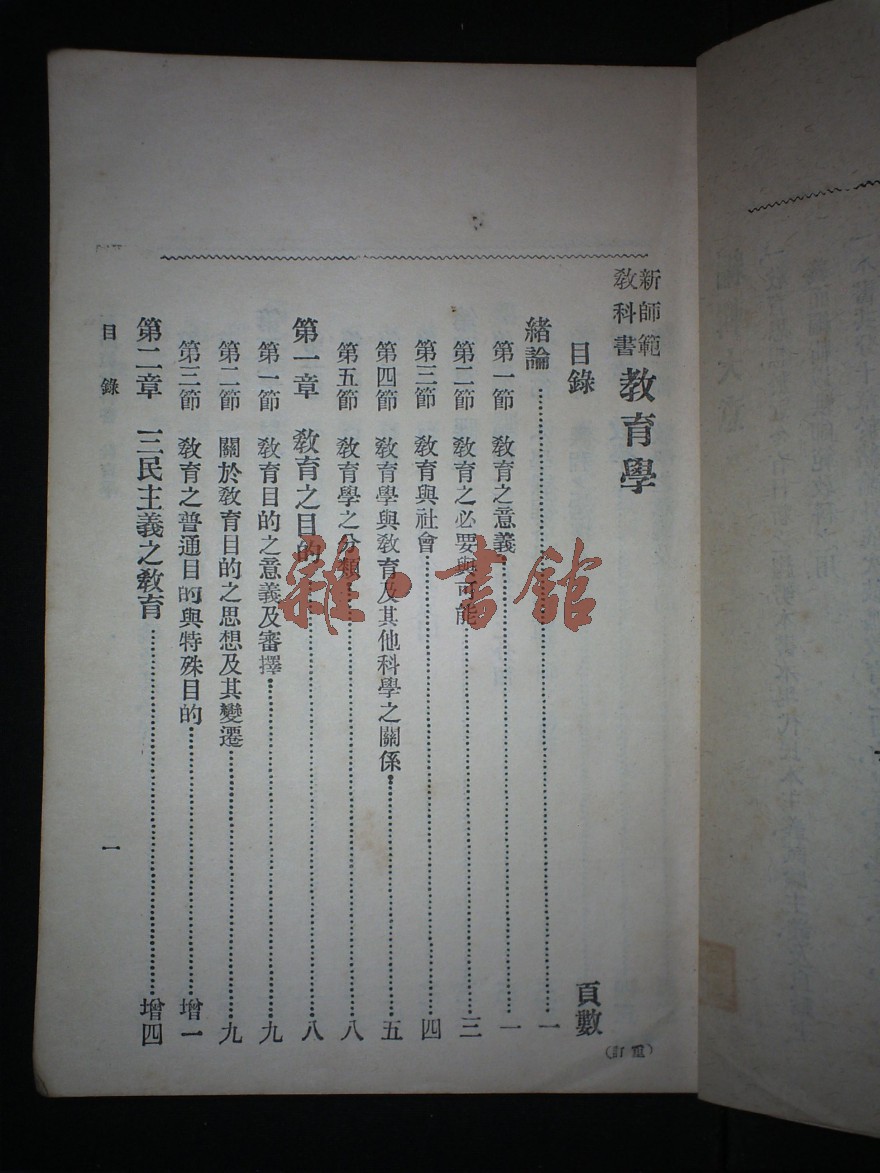 新師範
教科書
教育學
(重訂)
目錄
頁數
緒論……一
第一節 教育之意義……一
第二節 教育之必要與可能……三
第三節 教育與社會……四
第四節 教育學與教育及其他科學之關係……五
第五節 教育學之分類……八
第一章 教育之目的……八
第一節 教育目的之意義及審擇……九
第二節 關於教育目的之思想及其變遷……九
第三節 教育之普通目的與特殊目的……增一
第二章 三民主義之教育……增四
目錄
一
雜·書館